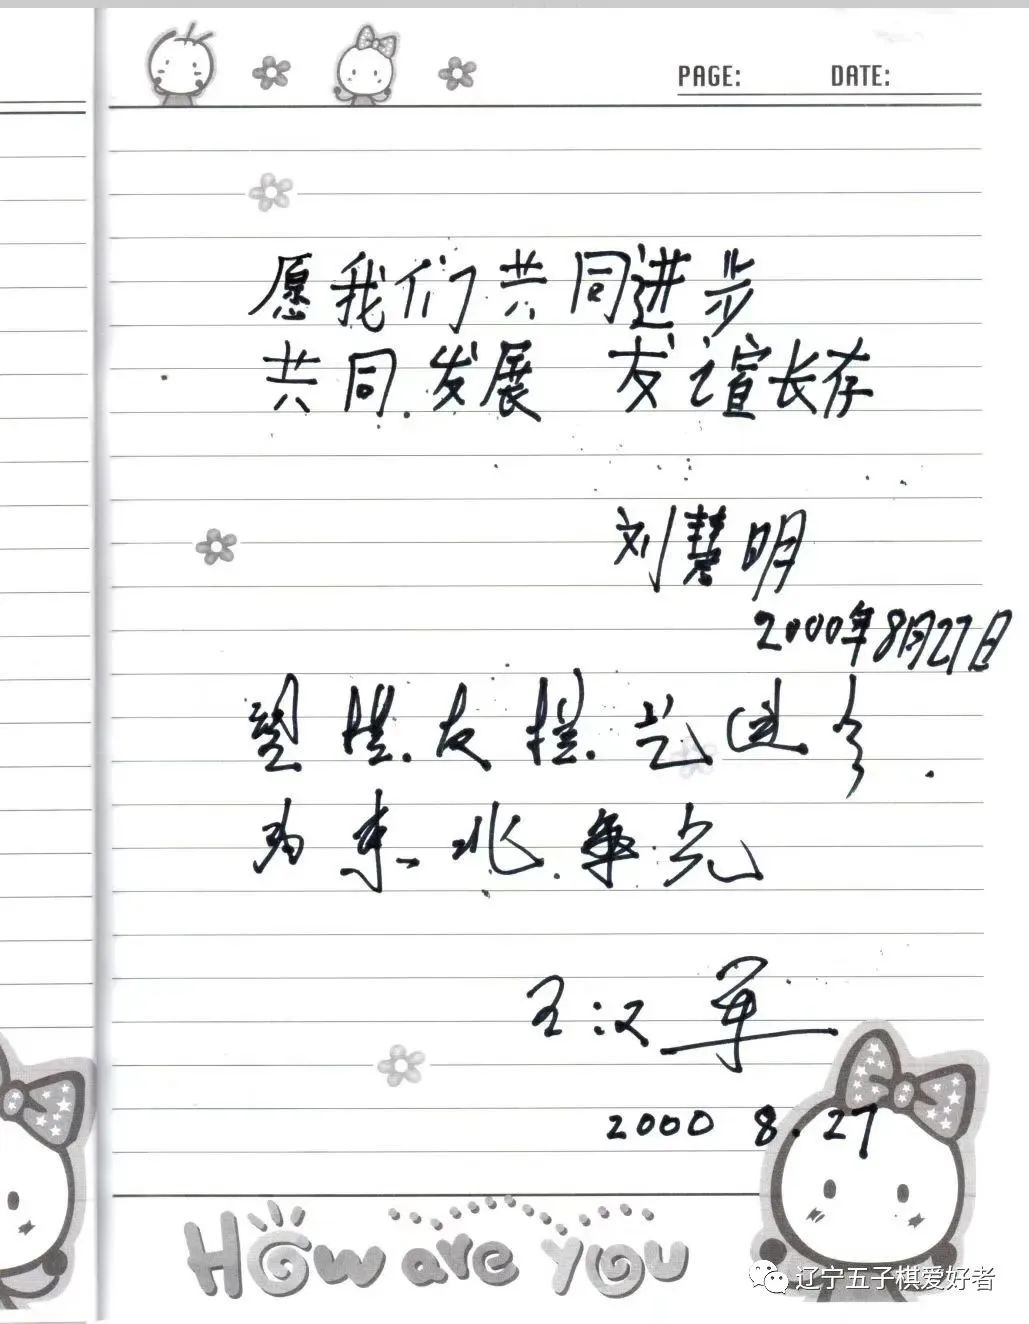 PAGE: DATE:
愿我们共同进步
共同发展 友谊长存
刘慧明
2000年8月27日
望棋友棋艺进步
为东北争光
王汉军
2000 8.27
How are you
辽宁五子棋爱好者